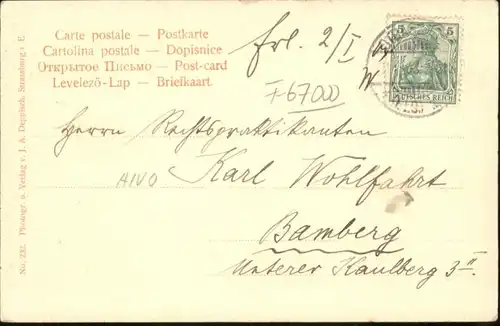 Carte postale — Postkarte
Cartolina postale — Dopisnice
Открытое Письмо — Post-card
Levelező-Lap — Briefkaart
Frl. 2/I
W
F67000
5 5
DEUTSCHES REICH
Herrn Rechtspraktikanten
A1V0
Karl Wohlfahrt
Bamberg
Unterer Kaulberg 3 II
No. 232. Photogr. u. Verlag v. J. A. Deppisch, Strassburg i. E.